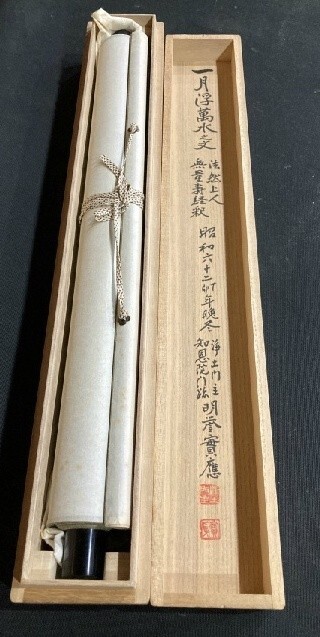 一月浮萬水之文
法然上人
無量壽経釈
昭和六十二卯年晩冬
浄土門主
知恩院門跡
明譽實應